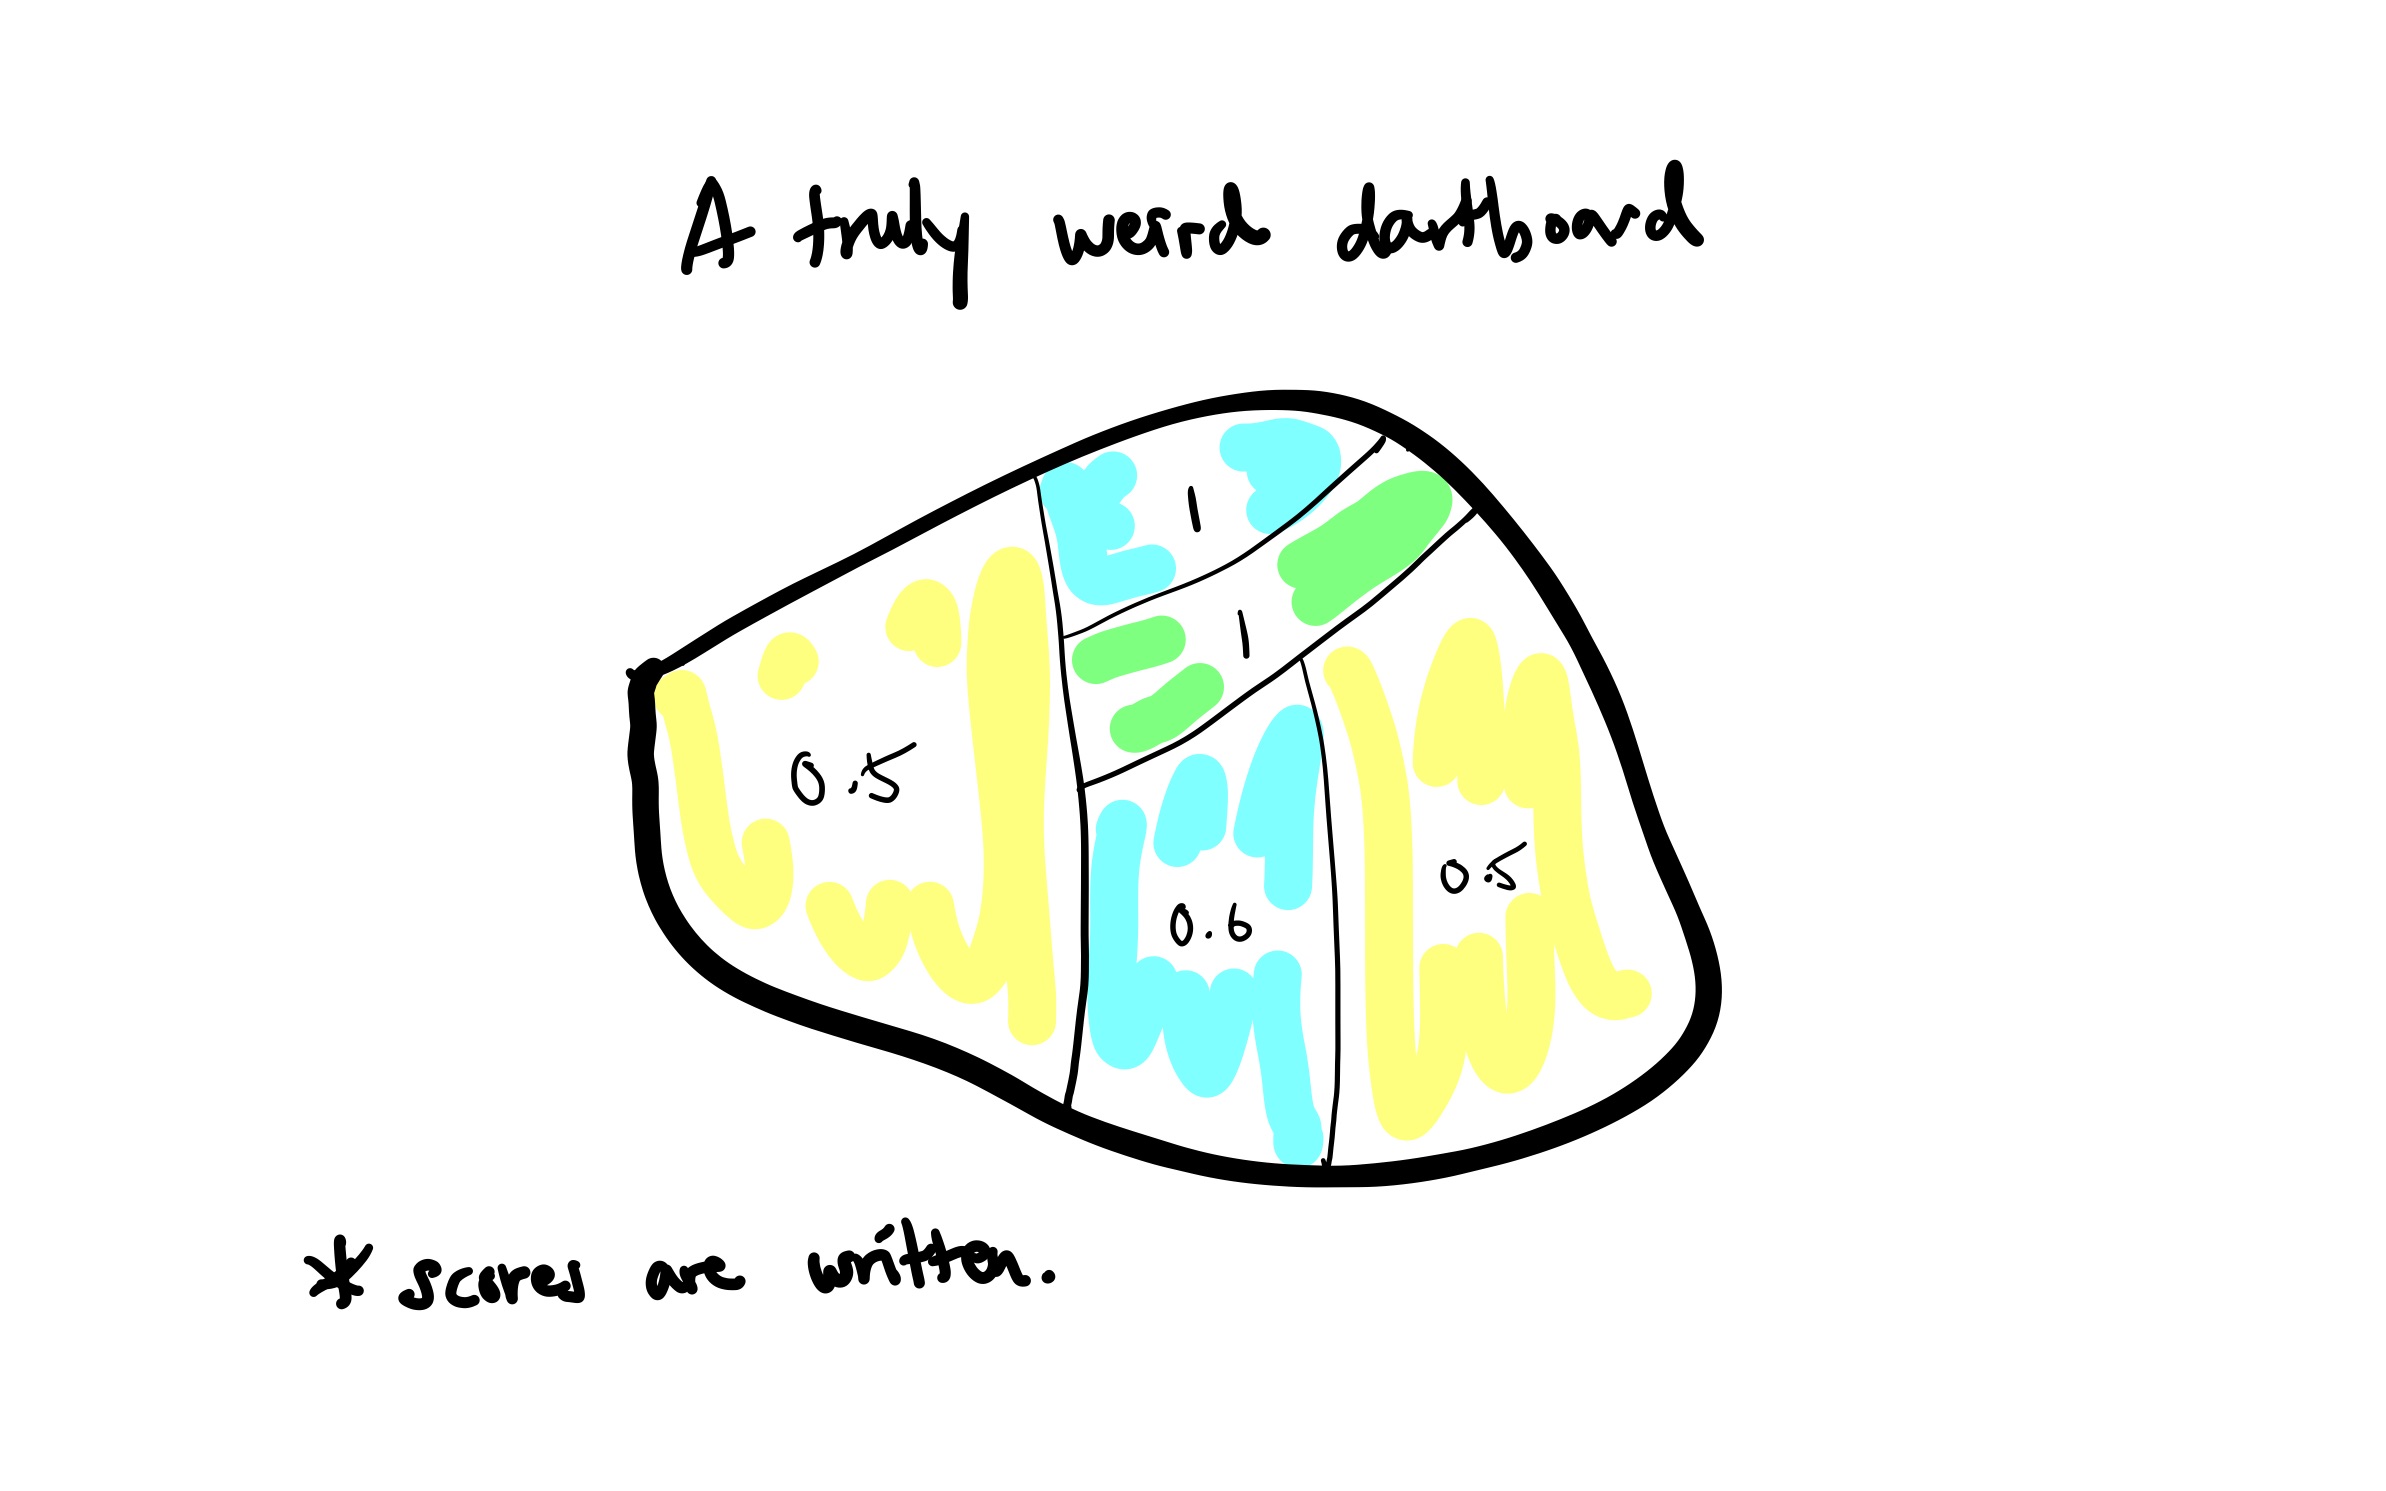 A truly weird dartboard
1
1
0.5
0.5
0.6
* scores are written.